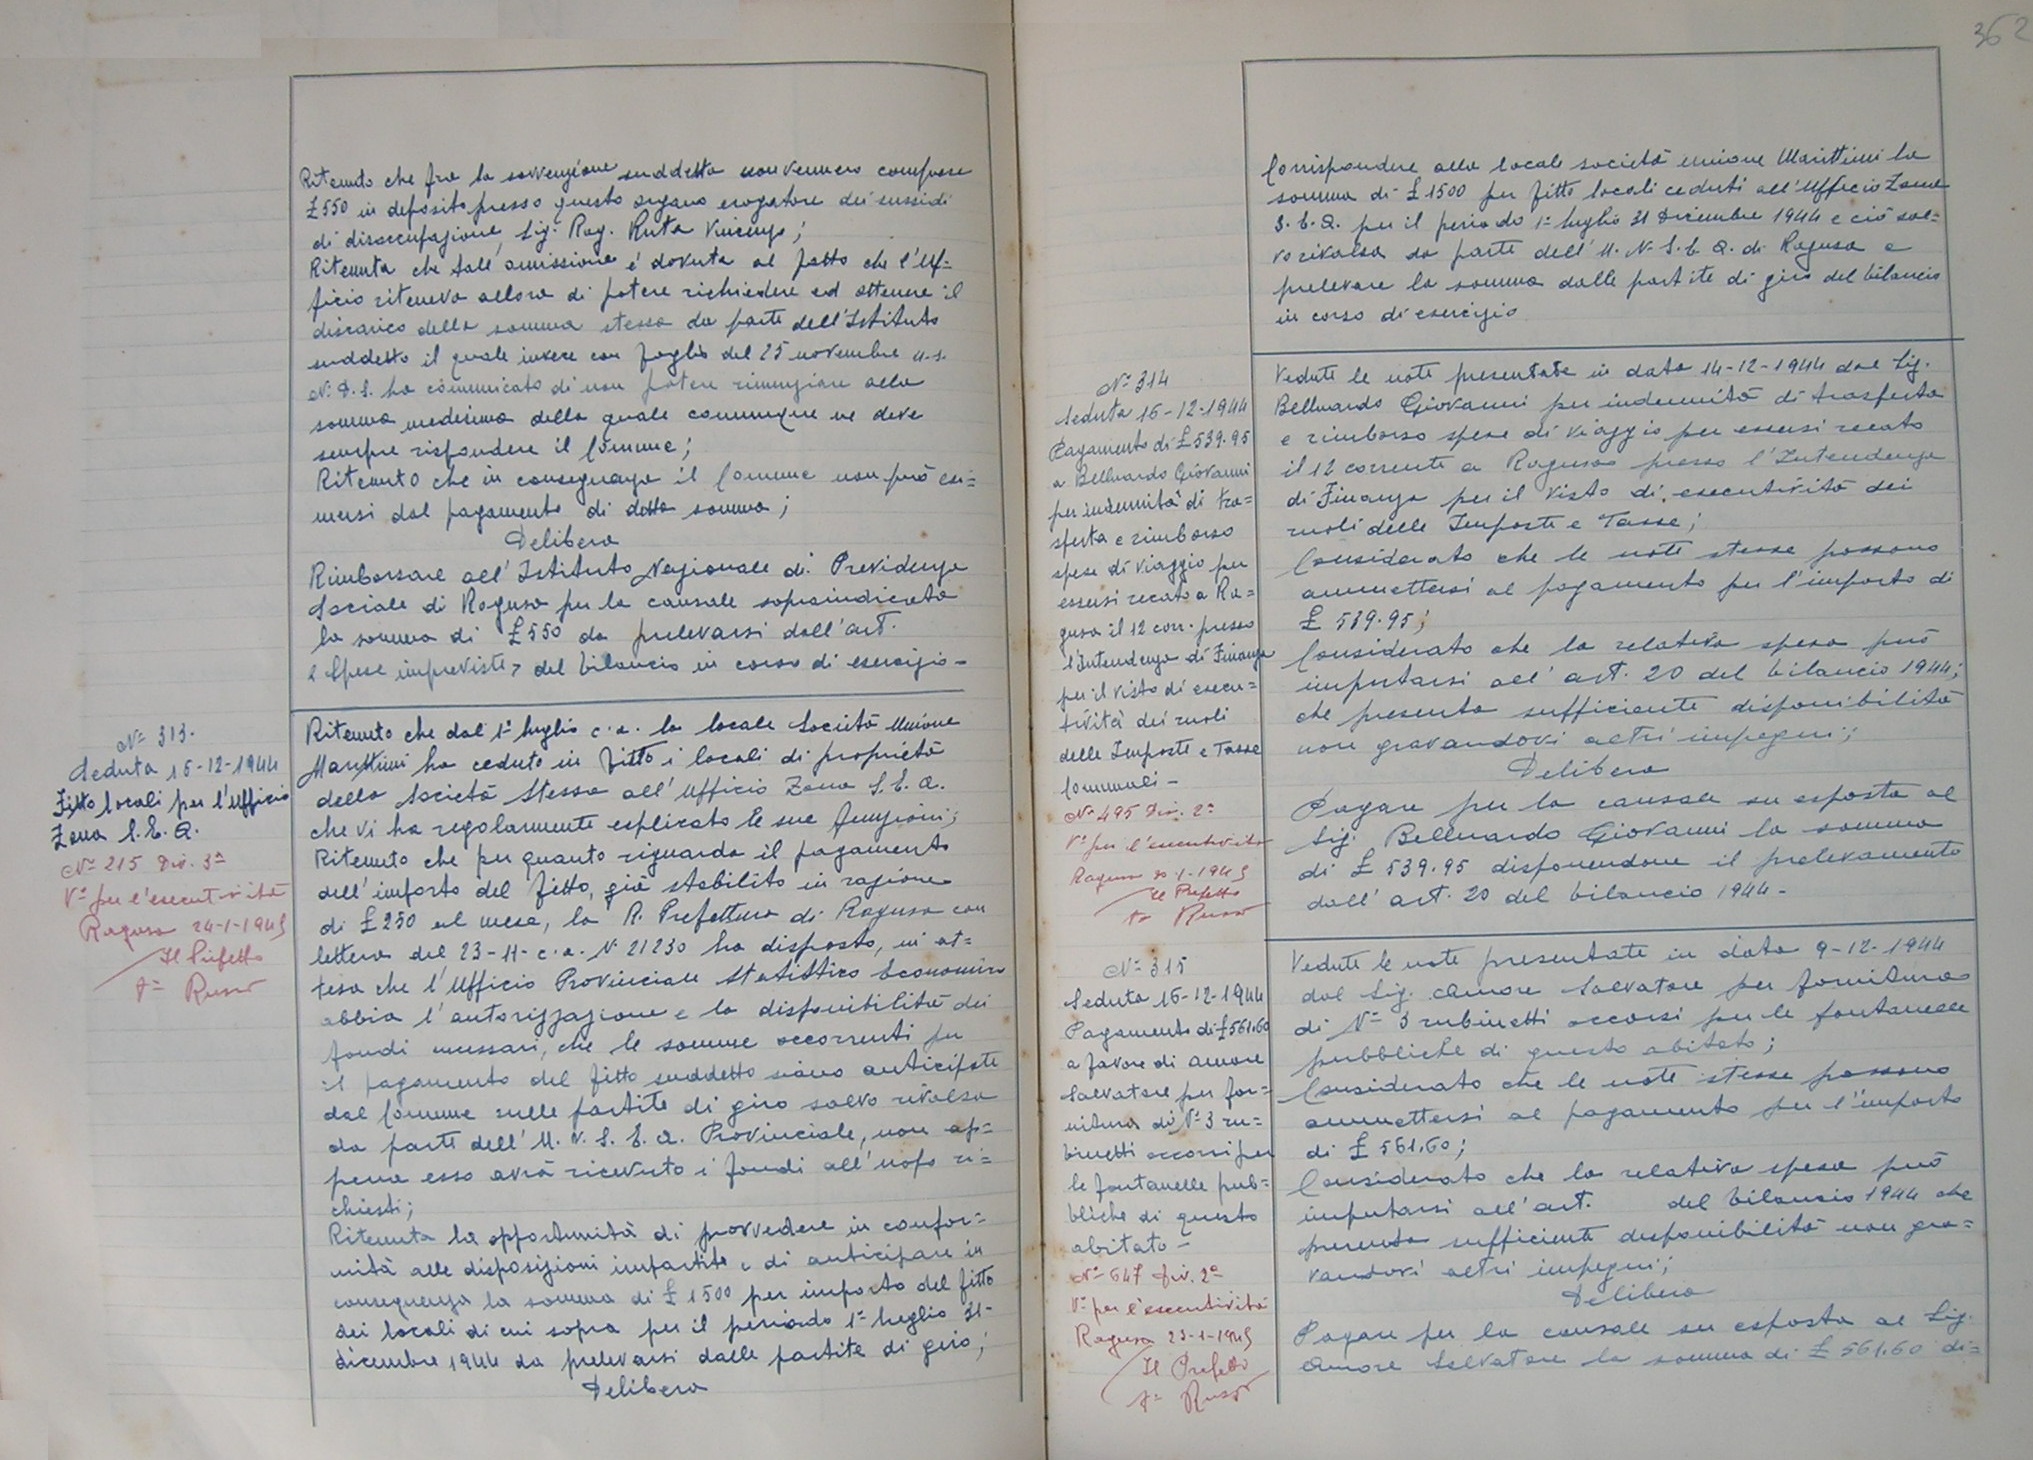 Ritenuto che fra la sovvenzione suddetta non vennero comprese
£ 550 in deposito presso questo organo erogatore dei sussidi
di disoccupazione, Sig. Rag. Ruta Vincenzo;
Ritenuta che tall'omissione é dovuta al fatto che l'Uf=
ficio riteneva allora di potere richiedere ed ottenere il
discarico della somma stessa da parte dell'Istituto
suddetto il quale invece con foglio del 25 novembre u.s.
N. D. S. ha comunicato di non potere rinunziare alla
somma medesima della quale comunque ne deve
sempre rispondere il Comune;
Ritenuto che in conseguenza il Comune non può esi=
mersi dal pagamento di detta somma;
Delibera
Rimborsare all'Istituto Nazionale di Previdenza
Sociale di Ragusa per la causale sopraindicata
la somma di £ 550 da prelevarsi dall'art.
"Spese impreviste" del bilancio in corso di esercizio -
Nº 313.
Seduta 16-12-1944
Fitto locali per l'Ufficio
Zona S.E.A.
Nº 215 Div. 3ª
Vº per l'esecutività
Ragusa 24-1-1945
Il Prefetto
Fº Russo
Ritenuto che dal 1º luglio c.a. la locale Società Unione
Marittimi ha ceduto in fitto i locali di proprietà
della Società stessa all'Ufficio Zona S.E.A.
che vi ha regolarmente esplicato le sue funzioni;
Ritenuto che per quanto riguarda il pagamento
dell'importo del fitto, già stabilito in ragione
di £ 250 al mese, la R. Prefettura di Ragusa con
lettera del 23-11-c.a. N 21230 ha disposto, in at=
tesa che l'Ufficio Provinciale Statistico Economico
abbia l'autorizzazione e la disponibilità dei
fondi necessari, che le somme occorrenti per
il pagamento del fitto suddetto siano anticipate
dal Comune sulle partite di giro salvo rivalsa
da parte dell'U.N.S.E.A. Provinciale, non ap=
pena esso avrà ricevuto i fondi all'uopo ri=
chiesti;
Ritenuta la opportunità di provvedere in confor=
mità alle disposizioni impartite e di anticipare in
conseguenza la somma di £ 1500 per importo del fitto
dei locali di cui sopra per il periodo 1º luglio 31-
dicembre 1944 da prelevarsi dalle partite di giro;
Delibera
362
Corrispondere alla locale società unione Marittimi la
somma di £ 1500 per fitto locali ceduti all'Ufficio Zona
S.E.A. per il periodo 1º luglio 31 Dicembre 1944 e ciò sal=
vo rivalsa da parte dell'U.N.S.E.A. di Ragusa e
prelevare la somma dalle partite di giro del bilancio
in corso di esercizio
Nº 314
Seduta 16-12-1944
Pagamento di £ 539.95
a Belluardo Giovanni
per indennità di tra=
sferta e rimborso
spese di viaggio per
essersi recato a Ra=
gusa il 12 corr. presso
l'Intendenza di Finanza
per il visto di esecu=
tività dei ruoli
delle Imposte e Tasse
Comunali -
Nº 495 Div. 2ª
Vº per l'esecutività
Ragusa 20-1-1945
Il Prefetto
Fº Russo
Vedute le note presentate in data 14-12-1944 dal Sig.
Belluardo Giovanni per indennità di trasferta
e rimborso spese di viaggio per essersi recato
il 12 corrente a Ragusa presso l'Intendenza
di Finanza per il visto di esecutività dei
ruoli delle Imposte e Tasse;
Considerato che le note stesse possono
ammettersi al pagamento per l'importo di
£ 539.95;
Considerato che la relativa spesa può
imputarsi all'art. 20 del bilancio 1944;
che presenta sufficiente disponibilità
non gravandovi altri impegni;
Delibera
Pagare per la causale su esposta al
Sig. Belluardo Giovanni la somma
di £ 539.95 disponendone il prelevamento
dall'art. 20 del bilancio 1944 -
Nº 315
Seduta 16-12-1944
Pagamento di £ 561.60
a favore di Amore
Salvatore per for=
nitura di Nº 3 ru=
binetti occorsi per
le fontanelle pub=
bliche di questo
abitato -
Nº 647 Div. 2ª
Vº per l'esecutività
Ragusa 23-1-1945
Il Prefetto
Fº Russo
Vedute le note presentate in data 9-12-1944
dal Sig. Amore Salvatore per fornitura
di Nº 3 rubinetti occorsi per le fontanelle
pubbliche di questo abitato;
Considerato che le note stesse possono
ammettersi al pagamento per l'importo
di £ 561.60;
Considerato che la relativa spesa può
imputarsi all'art. del bilancio 1944 che
presenta sufficiente disponibilità non gra=
vandovi altri impegni;
Delibera
Pagare per la causale su esposta al Sig.
Amore Salvatore la somma di £ 561.60 di=